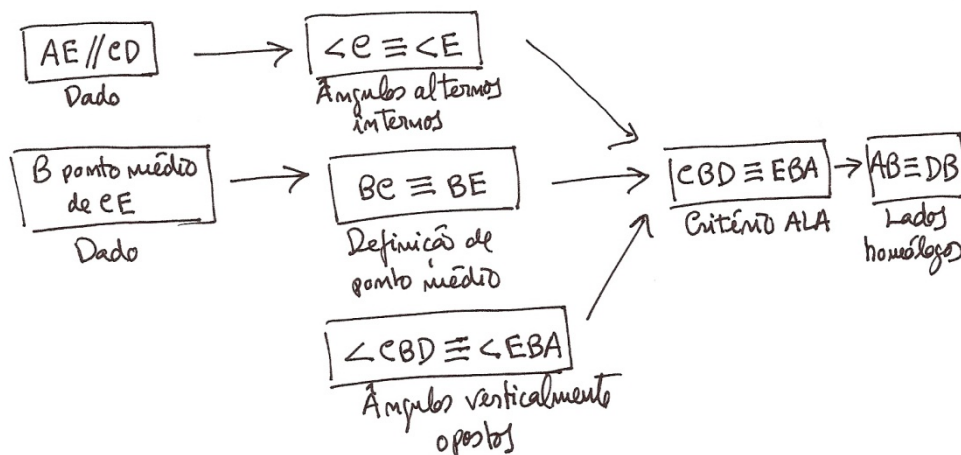 AE//CD
Dado
<C ≡ <E
Ângulos alternos
internos
B ponto médio
de CE
Dado
BC ≡ BE
Definição de
ponto médio
<CBD ≡ <EBA
Ângulos verticalmente
opostos
CBD ≡ EBA
Critério ALA
AB ≡ DB
Lados
homólogos